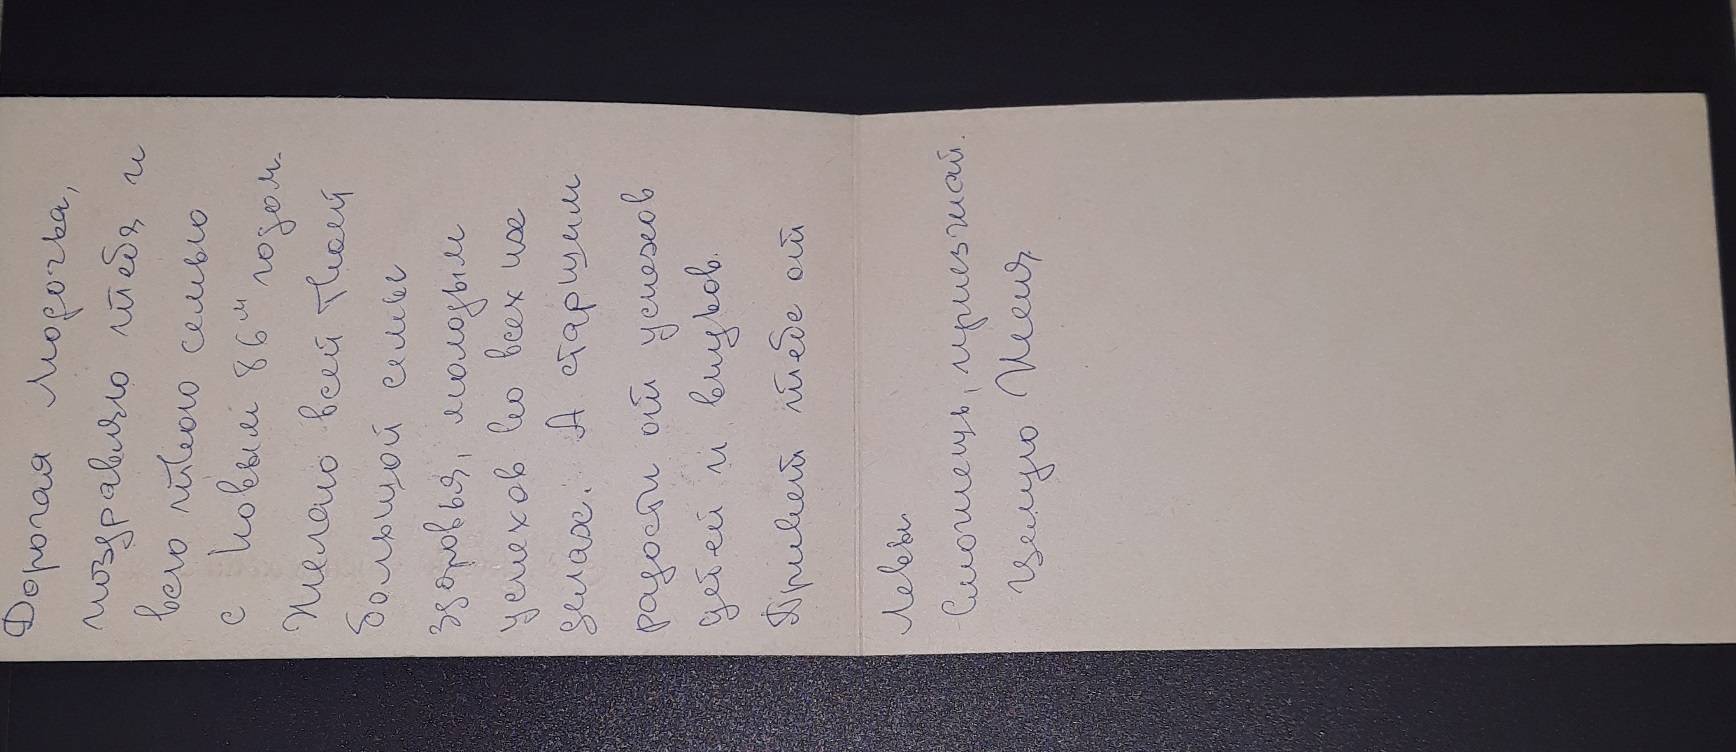 Дорогая Лидочка,
поздравляю тебя и
всю твою семью
с Новым 86м годом.
Желаю всей твоей
большой семьи
здоровья, молодым
успехов во всех их
делах. А старшим
радости от успехов
детей и внуков.
Привет тебе от
Левы.
Сможешь, приезжай.
Целую Женя